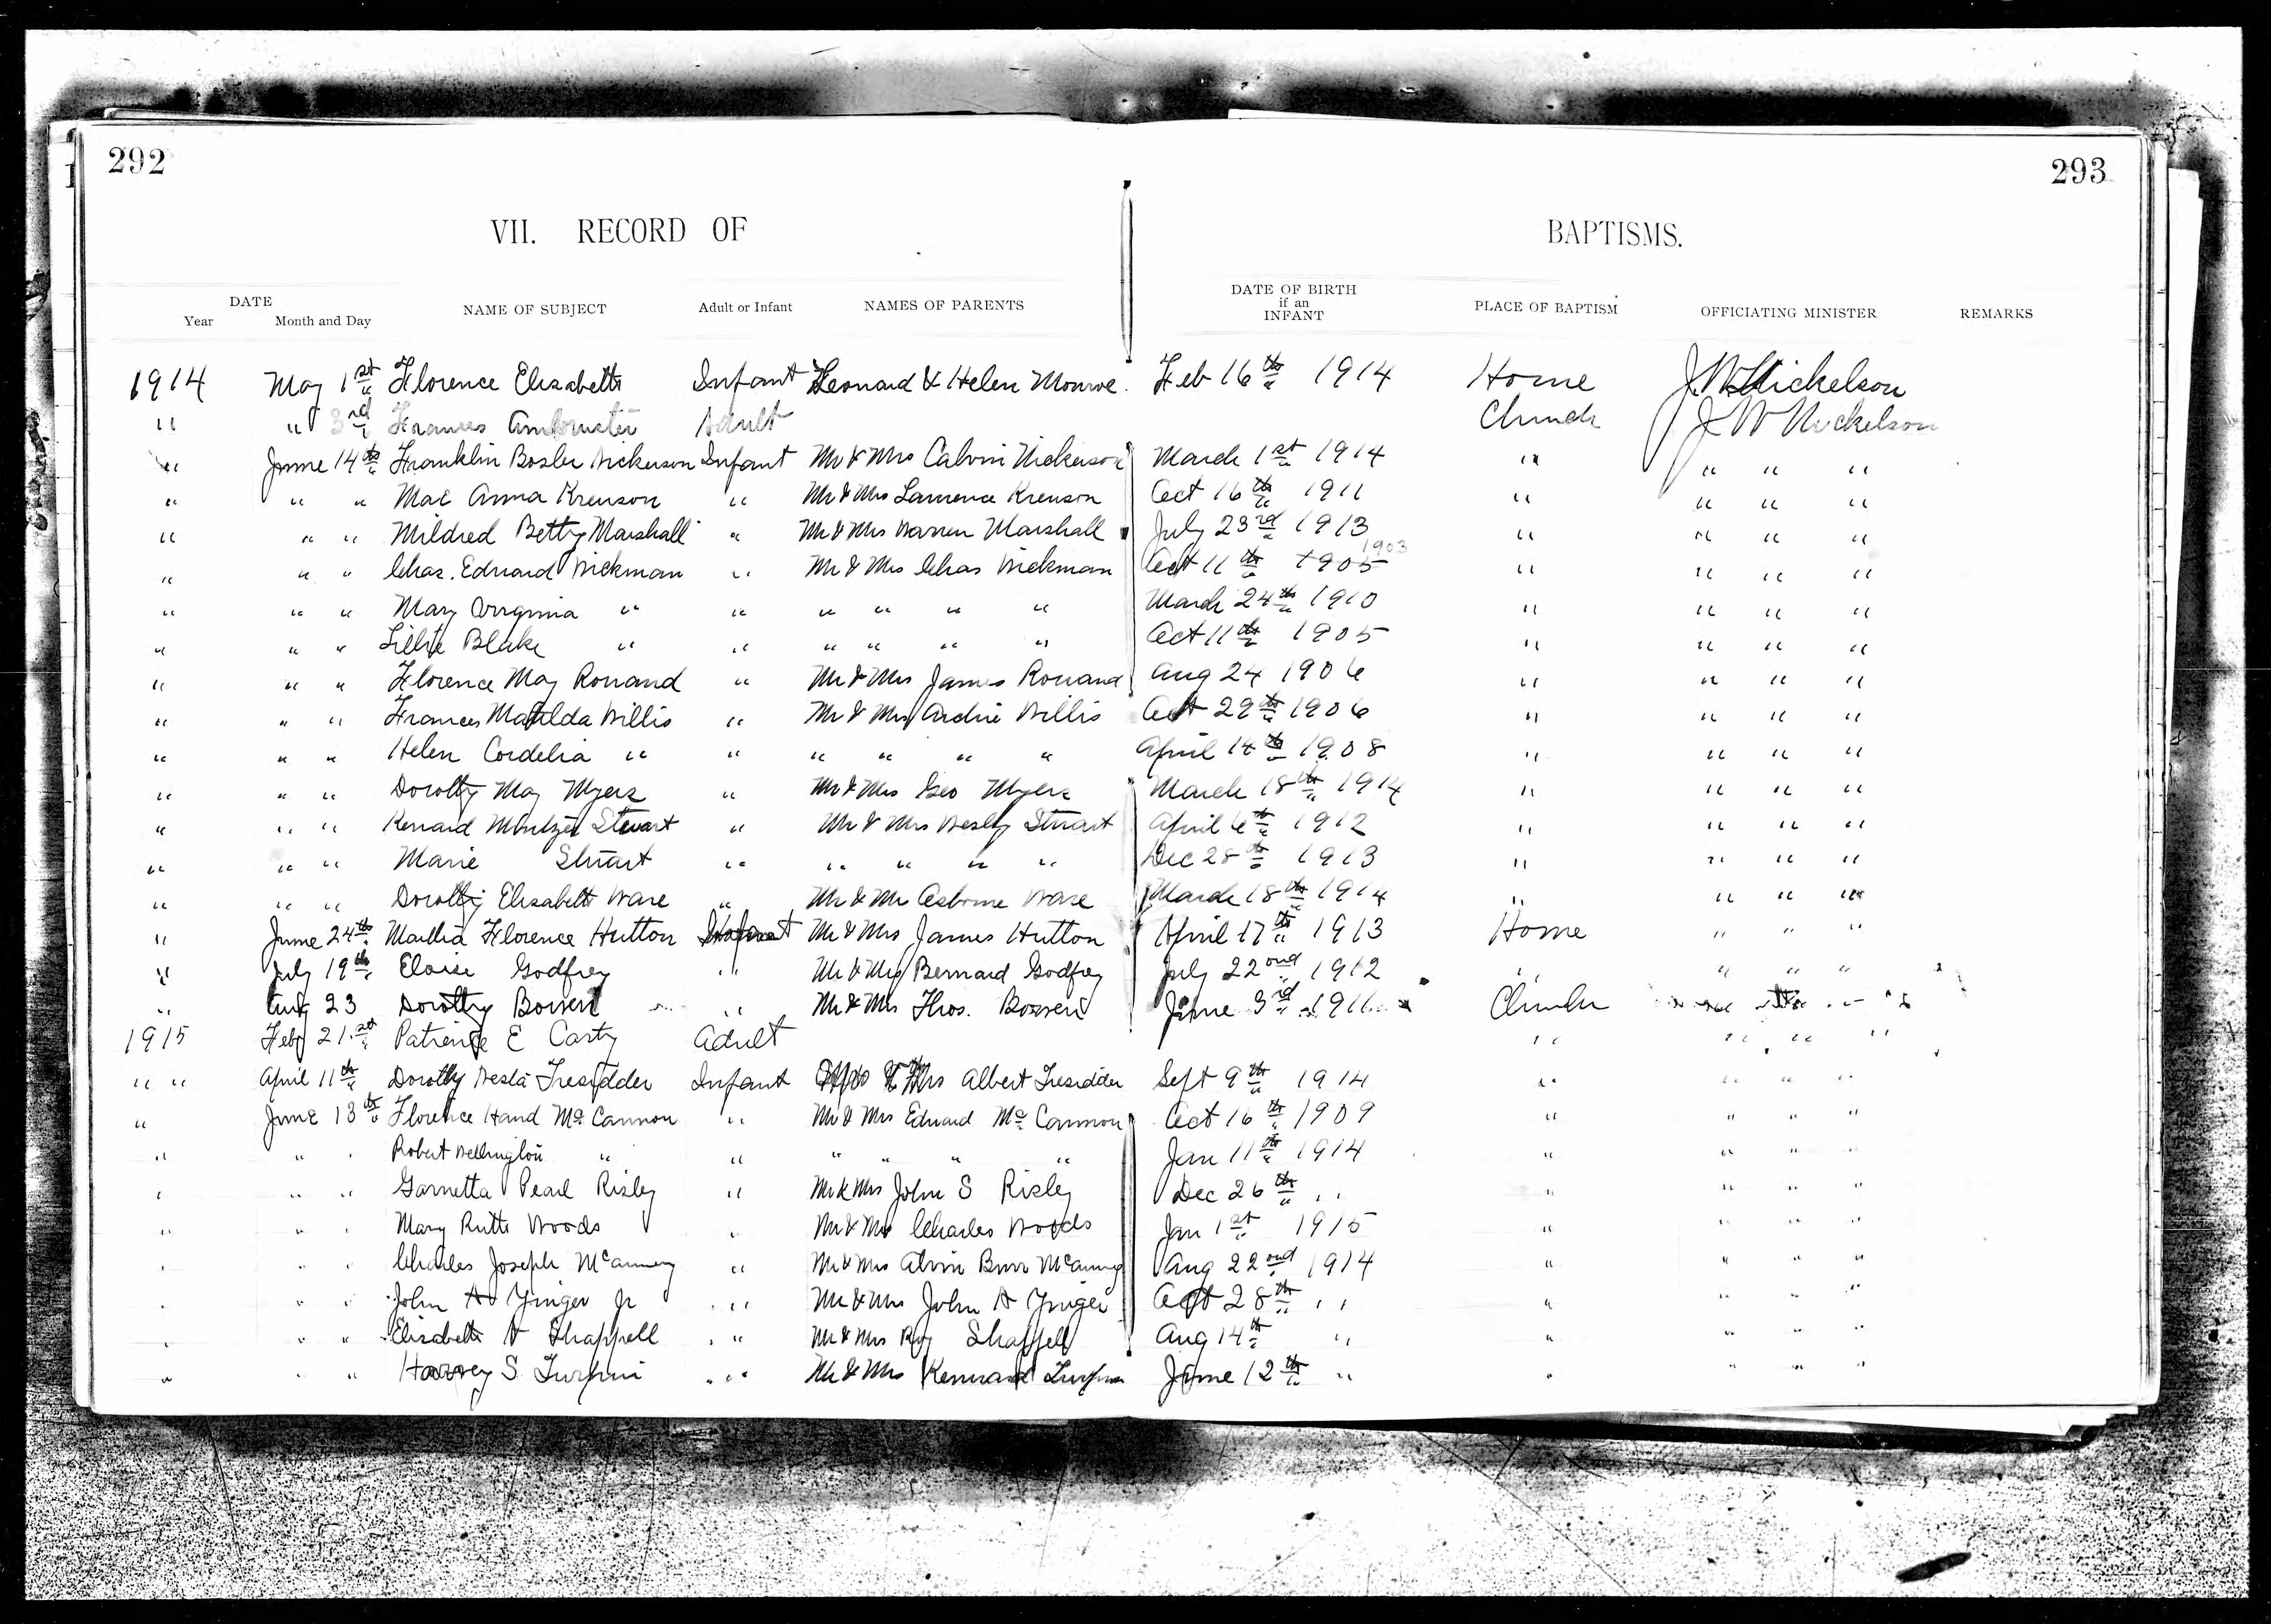 292
293
VII. RECORD OF BAPTISMS.
DATE
Year Month and Day NAME OF SUBJECT Adult or Infant NAMES OF PARENTS DATE OF BIRTH if an INFANT PLACE OF BAPTISM OFFICIATING MINISTER REMARKS
1914 May 1st Florence Elizabeth Infant Leonard & Helen Monroe. Feb 16th 1914 Home J. W. Nickelson
" " 3rd Frances Adult Church J W Nickelson
" June 14th Franklin Bosler Nickerson Infant Mr & Mrs Calvin Nickerson March 1st 1914 " " " "
" " " Mae Anna Krenson " Mr & Mrs Lawrence Krenson Oct 16th 1911 " " " "
" " " Mildred Betty Marshall " Mr & Mrs Warren Marshall July 23rd 1913 " " " "
" " " Chas. Edward Wickman " Mr & Mrs Chas Wickman Oct 11th 1905 1903 " " " "
" " " Mary Virginia " " " " " " March 24th 1910 " " " "
" " " Lillie Blake " " " " " " Oct 11th 1905 " " " "
" " " Florence May Ronand " Mr & Mrs James Ronand Aug 24 1906 " " " "
" " " Frances Matilda Willis " Mr & Mrs Archie Willis Oct 29th 1906 " " " "
" " " Helen Cordelia " " " " " " April 14th 1908 " " " "
" " " Dorothy May Myers " Mr & Mrs Geo Myers March 18th 1914 " " " "
" " " Kenard Mintzer Stewart " Mr & Mrs Wesley Stuart April 6th 1912 " " " "
" " " Marie Stuart " " " " " Dec 28th 1913 " " " "
" " " Dorothy Elizabeth Ware " Mr & Mr Osborne Ware March 18th 1914 " " " "
" June 24th Martha Florence Hutton Infant Mr & Mrs James Hutton April 17th 1913 Home " " "
" July 19th Eloise Godfrey " Mr & Mrs Bernard Godfrey July 22nd 1912 " " " "
" Aug 23 Dorothy Bowen " Mr & Mrs Thos. Bowen June 3rd 1911 Church " " "
1915 Feby 21st E Carty Adult " " " "
" " April 11th Dorothy Tresidder Infant Mr & Mrs Albert Tresidder Sept 9th 1914 " " " "
" June 13th Florence Hand McCannon " Mr & Mrs Edward McCannon Oct 16th 1909 " " " "
" " " Robert Wellington " " " " " " Jan 11th 1914 " " " "
" " " Garnetta Pearl Risley " Mr & Mrs John S Risley Dec 26th " " " " "
" " " Mary Ruth Woods " Mr & Mrs Charles Woods Jan 1st 1915 " " " "
" " " Charles Joseph McAnney " Mr & Mrs Alvin Burr McAnney Aug 22nd 1914 " " " "
" " " John A Yinger Jr " Mr & Mrs John A Yinger Oct 28th " " " " "
" " " Elizabeth V Shappell " Mr & Mrs Roy Shappell Aug 14th " " " " "
" " " Harvey S. Turpin " Mr & Mrs Kennard Turpin June 12th " " " " "